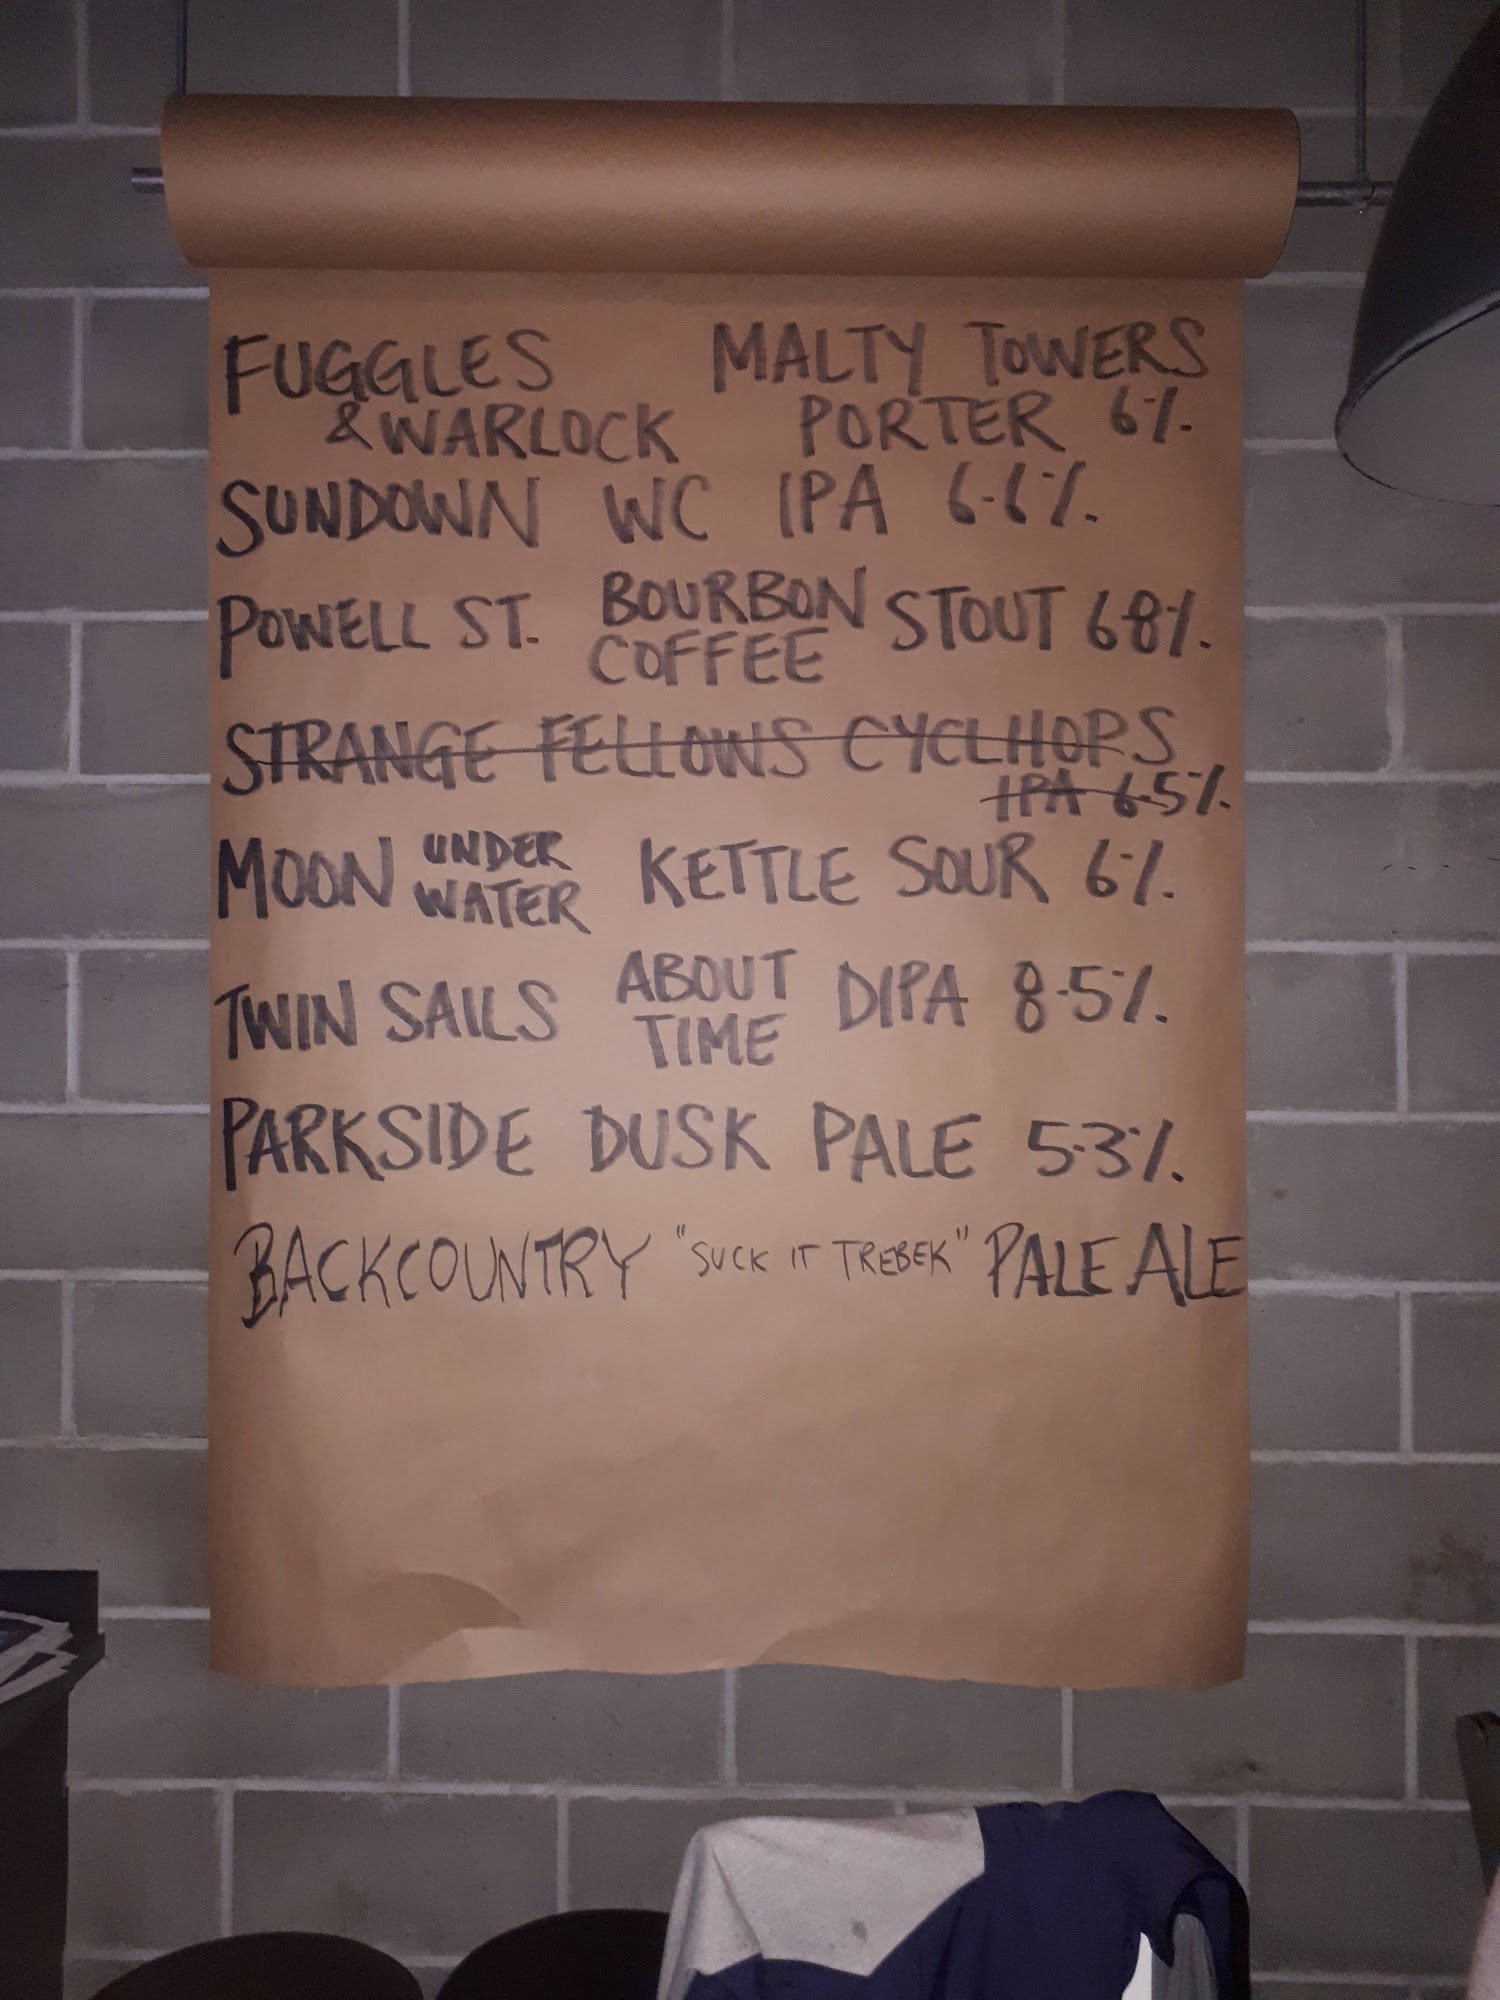 FUGGLES MALTY TOWERS
& WARLOCK PORTER 6%
SUNDOWN WC IPA 6.6%
POWELL ST. BOURBON COFFEE STOUT 6.8%
STRANGE FELLOWS CYCLHOPS
IPA 6.5%
MOON UNDER WATER KETTLE SOUR 6%
TWIN SAILS ABOUT TIME DIPA 8.5%
PARKSIDE DUSK PALE 5.3%
BACKCOUNTRY "SUCK IT TREBEK" PALE ALE